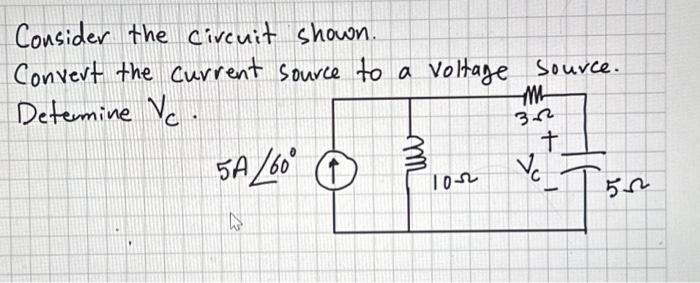 Consider the circuit shown.
Convert the current source to a voltage source.
Determine Vc.
3Ω
+
5A∠60°
10Ω
Vc
-
5Ω